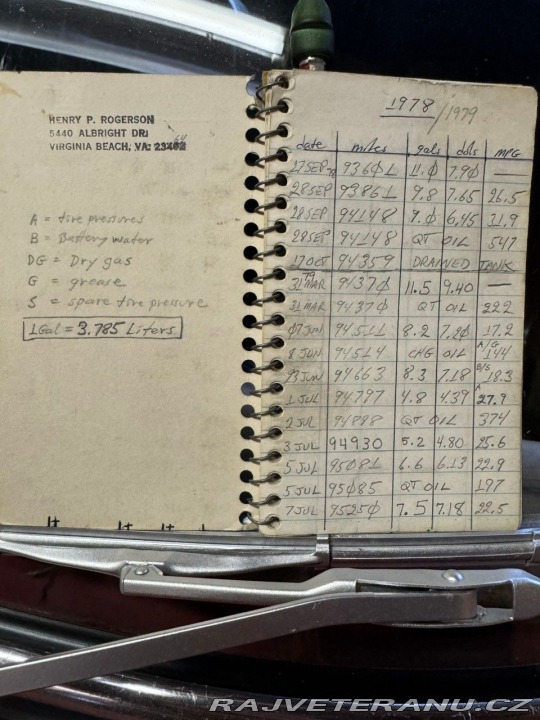 HENRY P. ROGERSON
5440 ALBRIGHT DR.
VIRGINIA BEACH, VA. 23462 64
A = tire pressures
B = Battery water
DG = Dry gas
G = grease
S = spare tire pressure
1Gal = 3.785 Liters
1978/1979
date miles gals dols MPG
27SEP 78 936Ø1 11.Ø 7.9Ø —
28SEP 93861 9.8 7.65 26.5
28SEP 94148 9.Ø 6.45 31.9
28SEP 94148 QT OIL 547
17OCT 94359 DRAINED TANK
31 MAR 79 9437Ø 11.5 9.40 —
31 MAR 9437Ø QT OIL 222
Ø7JUN 94511 8.2 7.2Ø 17.2
8 JUN 94514 CHG OIL A/G 144
13JUN 94663 8.3 7.18 B/S 18.3
1 JUL 94797 4.8 4.39 A 27.9
2 JUL 94888 QT OIL 374
3 JUL 94930 5.2 4.80 25.6
5 JUL 95081 6.6 6.13 22.9
5 JUL 95Ø85 QT OIL 197
7 JUL 9525Ø 7.5 7.18 22.5
RAJVETERANU.CZ